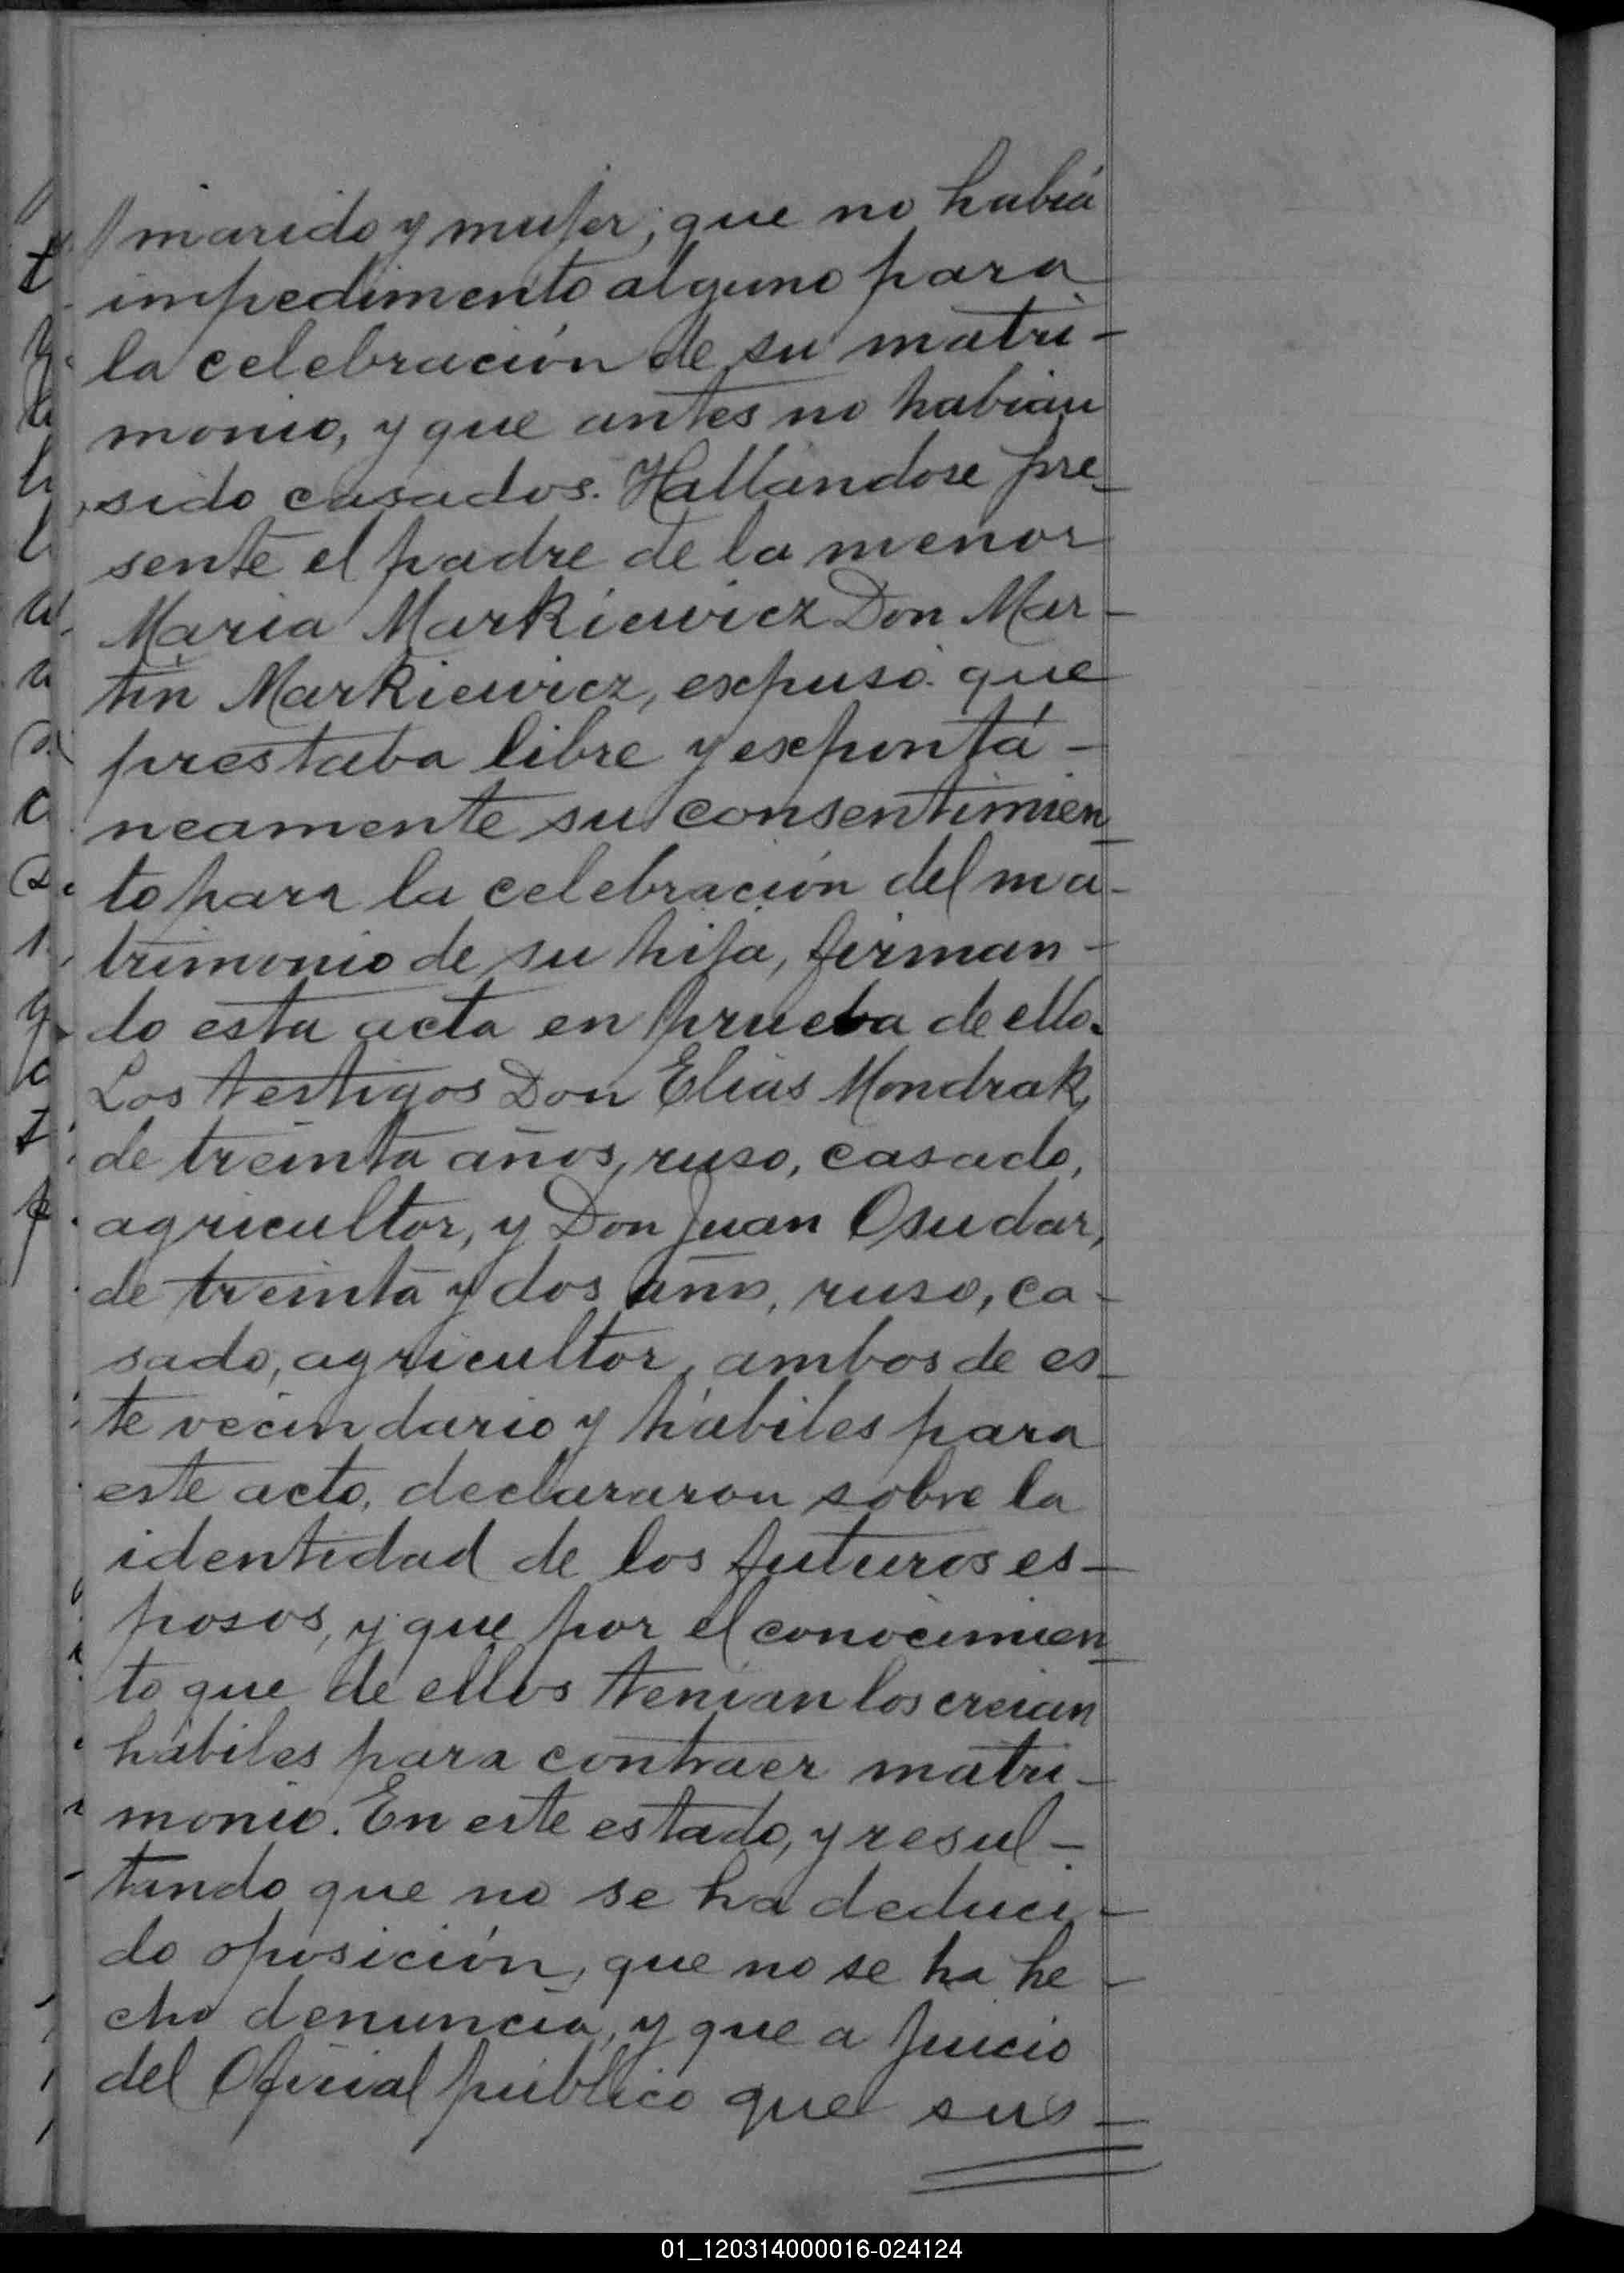 // marido y mujer; que no había
impedimento alguno para
la celebración de su matri-
monio, y que antes no habian
sido casados. Hallandose pre-
sente el padre de la menor
Maria Markiewicz Don Mar-
tín Markiewicz, expuso que
prestaba libre y expontá-
neamente su consentimien-
to para la celebración del ma-
trimonio de su hija, firman-
do esta acta en prueba de ello.
Los testigos Don Elias Mondrak,
de treinta años, ruso, casado,
agricultor, y Don Juan Osudar,
de treinta y dos años, ruso, ca-
sado, agricultor, ambos de es-
te vecindario y hábiles para
este acto, declararon sobre la
identidad de los futuros es-
posos, y que por el conocimien-
to que de ellos tenian los creian
hábiles para contraer matri-
monio. En este estado, y resul-
tando que no se ha deduci-
do oposición, que no se ha he-
cho denuncia, y que a juicio
del Oficial público que sus-
01_120314000016-024124